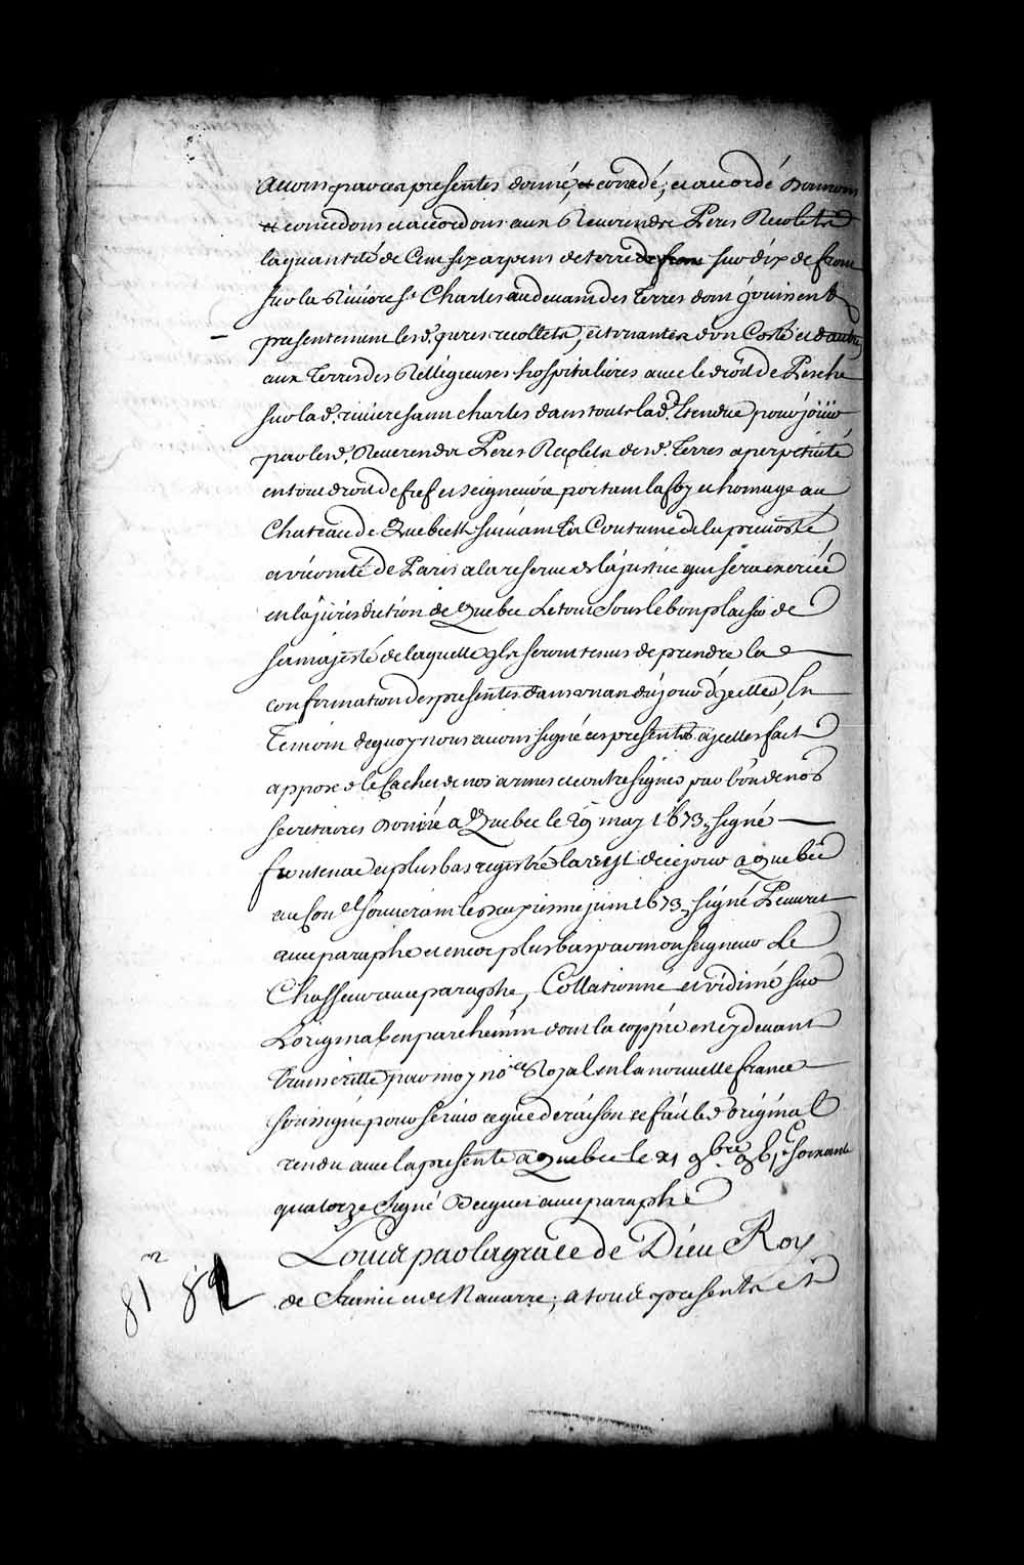 avons par ces presentes donné, et concedé, et accordé donnons
et concedons et accordons aux Reverendes Peres Recoletz
la quantité de Cent six arpens de terre de front sur dix de front
sur la Riviere St Charles au devant des Terres dont jouissent
presentement lesd. peres recollets, et tenantes d'un Costé et d'autre
aux Terres des Relligieuses hospitalieres avec le droit de Pesche
sur lad. riviere saint charles dans toute lad. Estendue pour joüir
par lesd. Reverendes Peres Recoletz desd. Terres a perpetuité
en tout droit de fief et seigneurie portant la foy et homage au
Chateau de Quebecq suivant la Coutume de la prevosté
et vicomté de Paris a la reserve de la justice qui sera exercée
en la jurisdiction de Quebec Le tout sous le bon plaisir de
sa majesté de laquelle ylz seront tenus de prendre la
confirmation des presentes dans un an du jour d'ycelles, En
Temoin de quoy nous avons signé ces presentes a ycelles fait
apposer le Cachet de nos armes et contresigner par l'un de nos
secretaires Donné a Quebec le 29 may 1673, signé
frontenac et plus bas registré la req.t de ce jour a Quebec
au Con.el souverain le deuxiesme juin 1673, signé Peuvret
avec paraphe et encor plus bas par monseigneur Le
Chasseur avec paraphe, Collationné et vidimé sur
L'original en parchemin dont la coppie est cy devant
transcritte par moy no.re Royal en la nouvelle france
soussigné pour servir ce que de raison ce fait led. original
rendu avec la presente a Quebec le 21 9bre 16c soixante
quatorze Signé Becquet avec paraphe
Louis par la grace de Dieu Roy
de France et de Navarre; a tous presents et
81
82